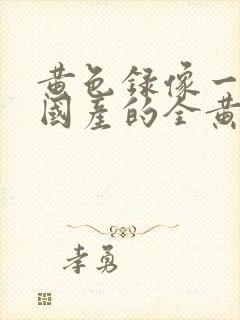 黄色録像一
國産的全黄
孝勇